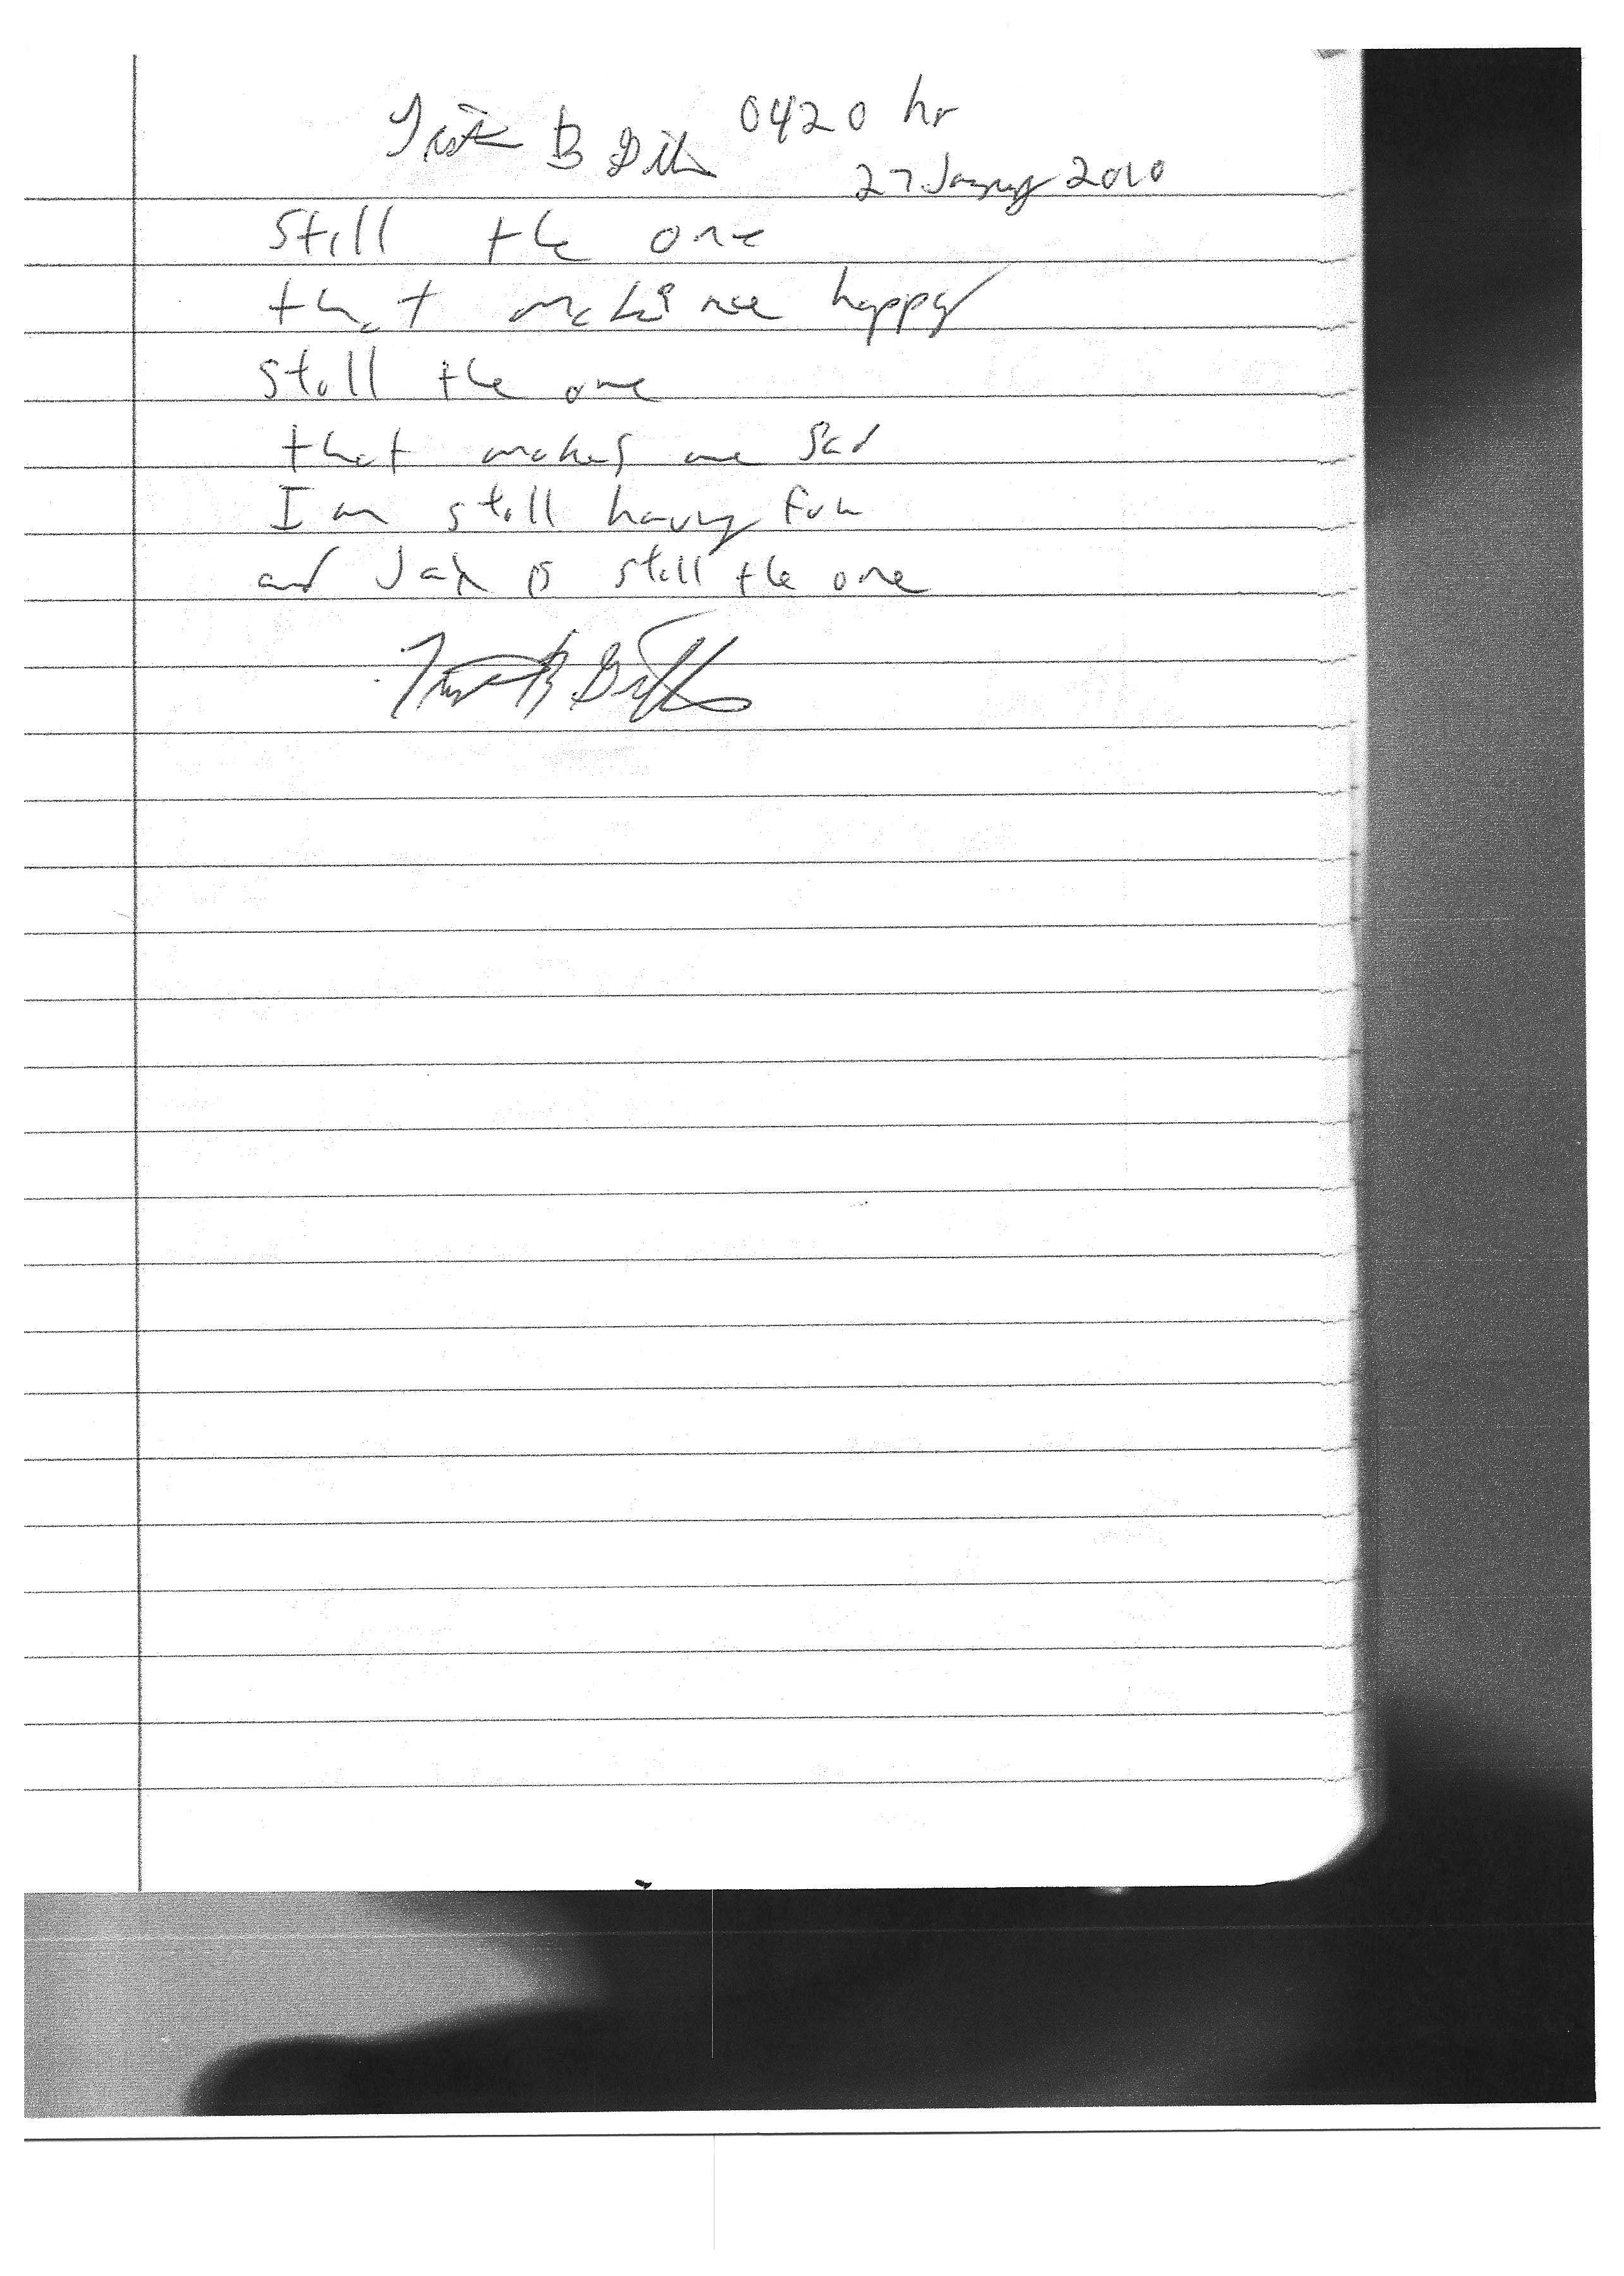 B 0420 hr
27 January 2010
Still the one
that makes me happy
still the one
that makes me sad
I am still having fun
and Jak is still the one
B